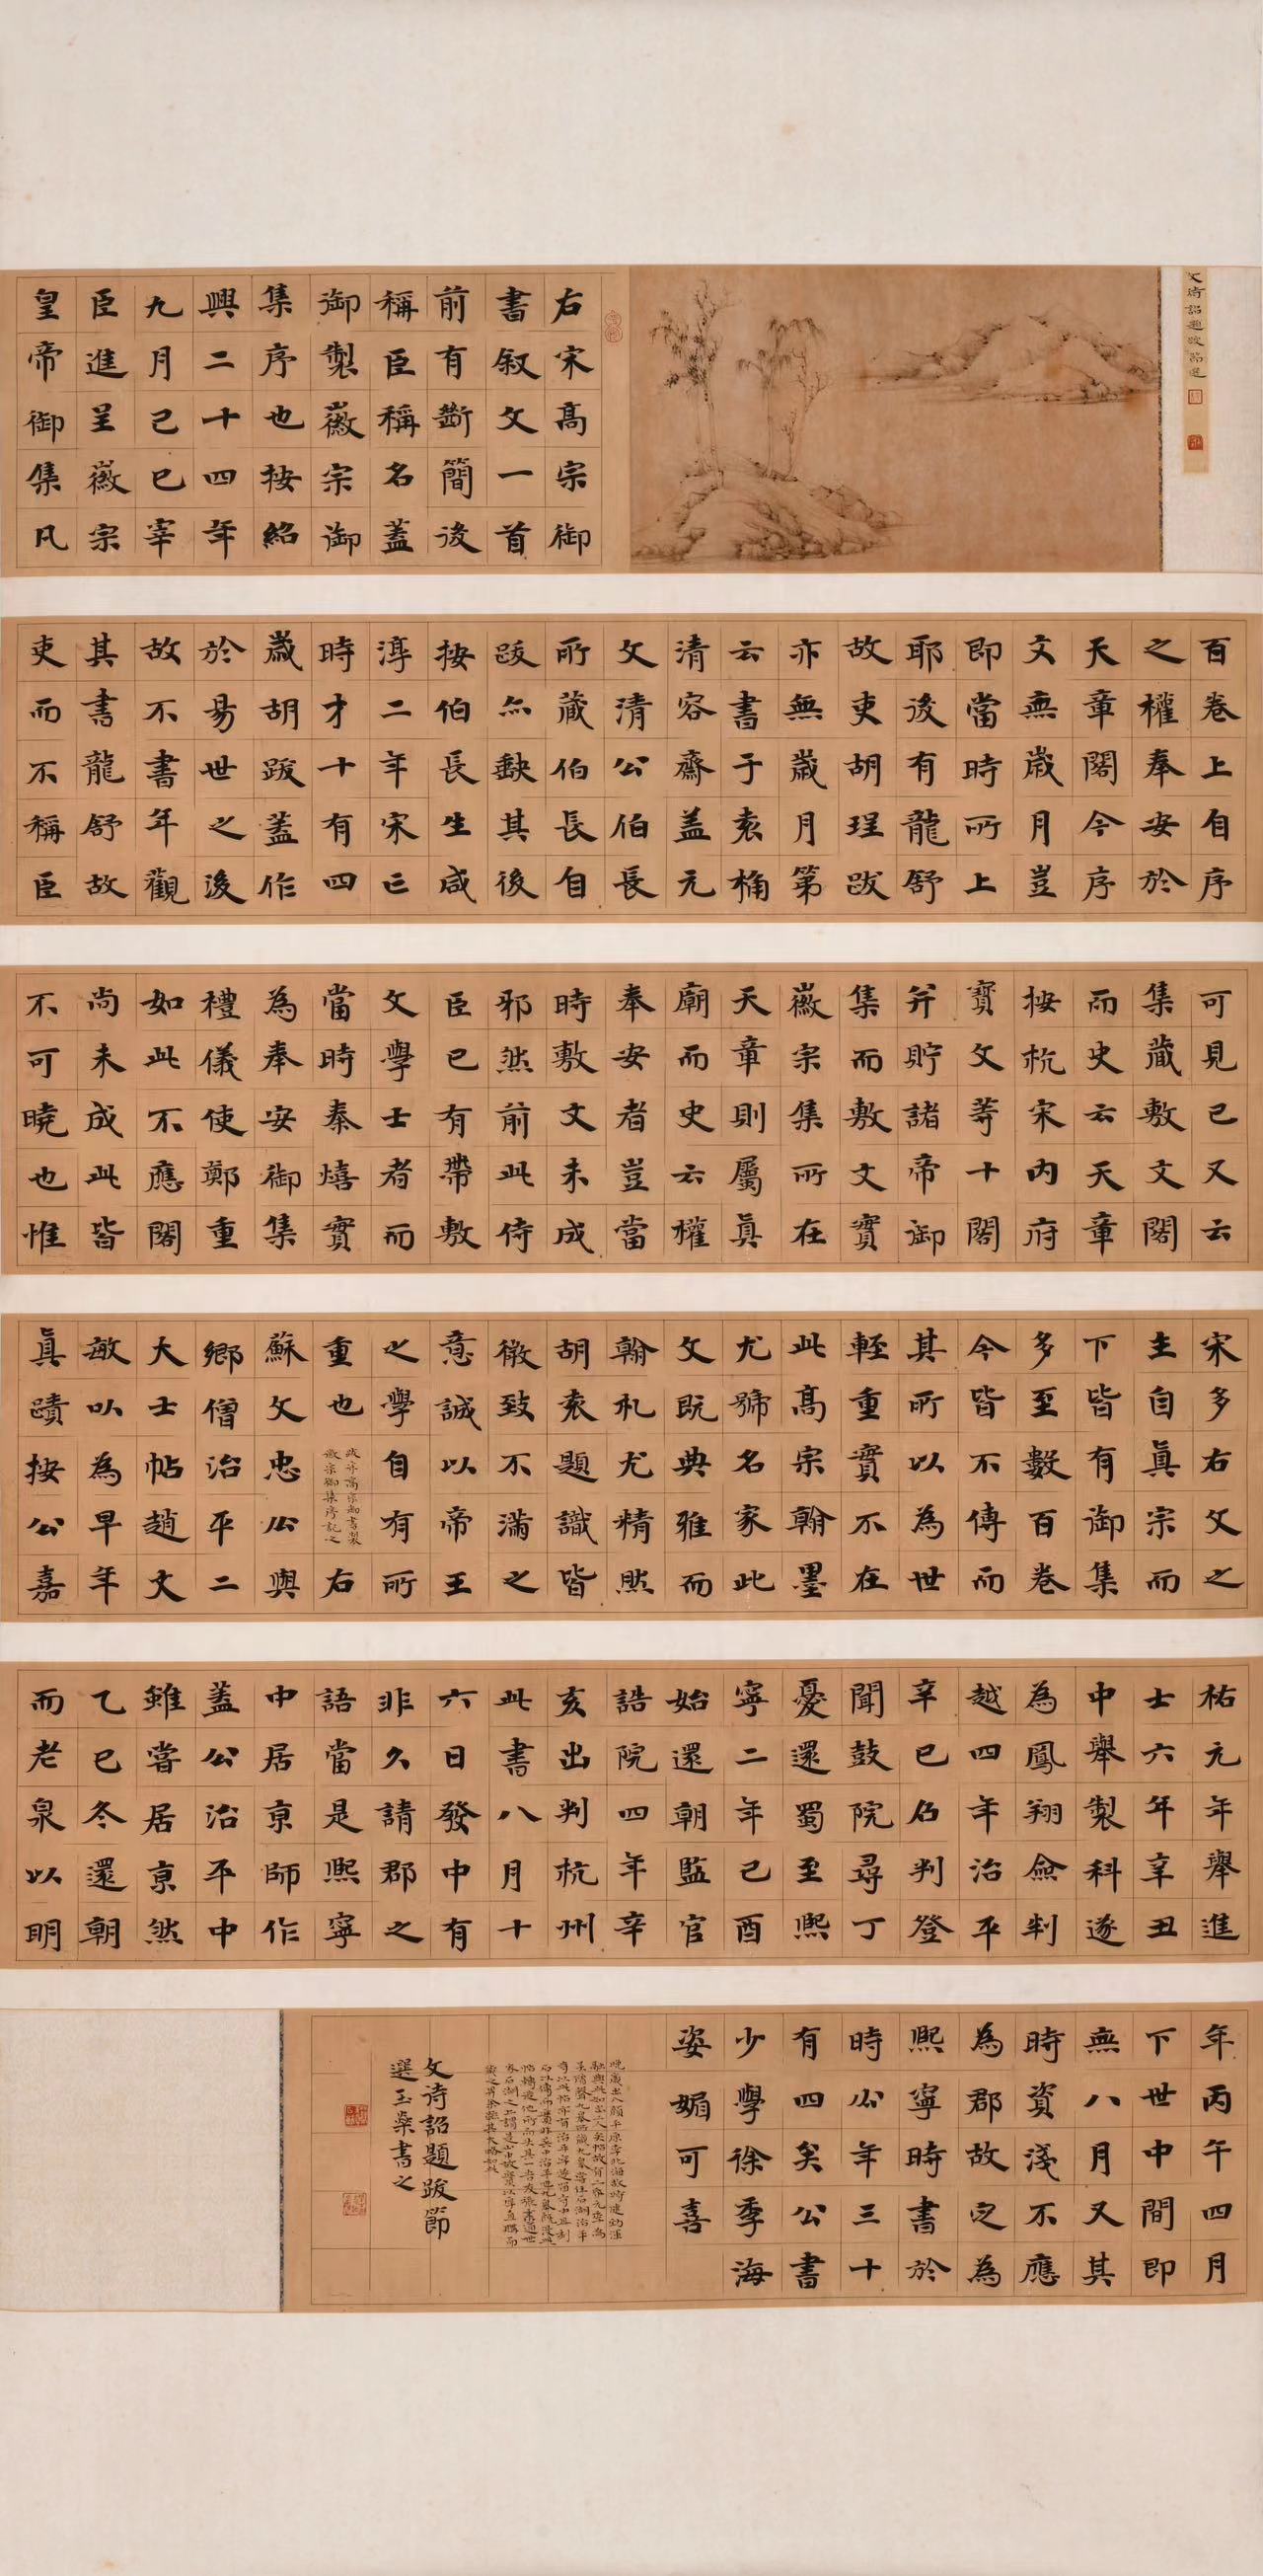 文待詔題跋節選
右宋高宗御
書叙文一首
前有斷簡後
稱臣稱名蓋
御製徽宗御
集序也按紹
興二十四年
九月己巳宰
臣進呈徽宗
皇帝御集凡
百卷上自序
之權奉安於
天章閣今序
文無歲月豈
即當時所上
耶後有龍舒
故吏胡珵跋
亦無歲月第
云書于袁桷
清容齋蓋元
文清公伯長
所藏伯長自
跋亦缺其後
按伯長生咸
淳二年宋亡
時才十有四
歲胡跋蓋作
於易世之後
故不書年觀
其書龍舒故
吏而不稱臣
可見已又云
集藏敷文閣
而史云天章
按杭宋內府
寶文等十閣
并貯諸帝御
集而敷文實
徽宗集所在
天章則屬真
廟而史云權
奉安者豈當
時敷文未成
邪然前此侍
臣已有帶敷
文學士者而
當時秦熺實
為奉安御集
禮儀使鄭重
如此不應閣
尚未成此皆
不可曉也惟
宋多右文之
主自真宗而
下皆有御集
多至數百卷
今皆不傳而
其所以為世
輕重實不在
此高宗翰墨
尤號名家此
文既典雅而
翰札尤精然
胡袁題識皆
微致不滿之
意誠以帝王
之學自有所
重也
高宗御書製
徽宗御集序記之
右
蘇文忠公與
鄉僧治平二
大士帖趙文
敏以為早年
真蹟按公嘉
祐元年舉進
士六年辛丑
中舉製科遂
為鳳翔僉判
越四年治平
辛巳召判登
聞鼓院尋丁
憂還蜀至熙
寧二年己酉
始還朝監官
誥院四年辛
亥出判杭州
此書八月十
六日發中有
非久請郡之
語當是熙寧
中居京師作
蓋公治平中
雖嘗居京然
乙巳冬還朝
而老泉以明
年丙午四月
下世中間即
無八月又其
時資淺不應
為郡故定為
熙寧時書於
時公年三十
有四矣公書
少學徐季海
姿媚可喜
晚歲出入顏平原李北海故特健勁渾
文待詔題跋節
選玉燊書之